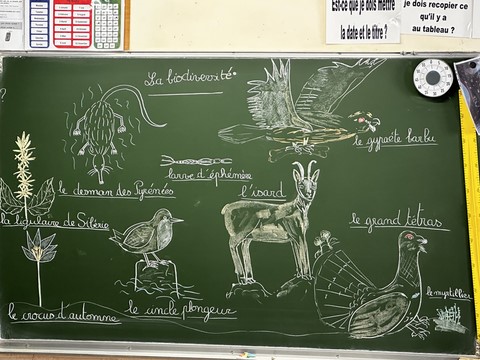 Est-ce que je dois mettre
la date et le titre ?
je dois recopier ce
qu'il y a
au tableau ?
La biodiversité
le gypaète barbu
larve d'éphémère
le desman des Pyrénées
l'isard
la ligulaire de Sibérie
le grand tétras
le myrtillier
le cincle plongeur
le crocus d'automne